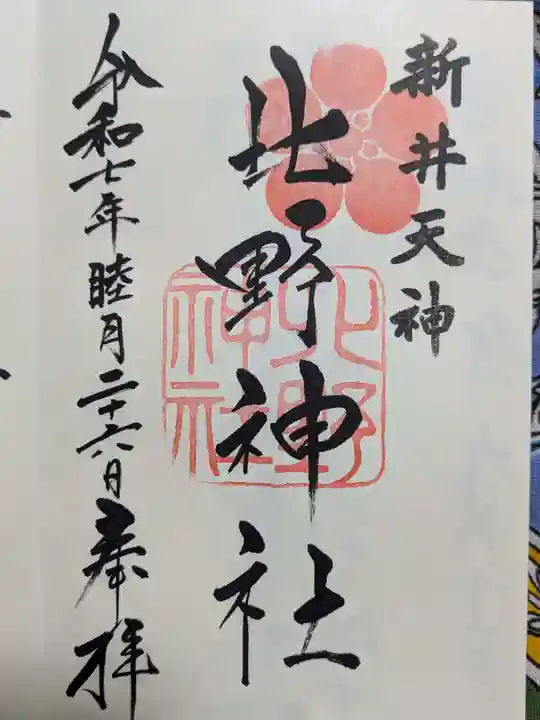 新井天神
北野神社
北野神社
令和七年睦月二十六日奉拝